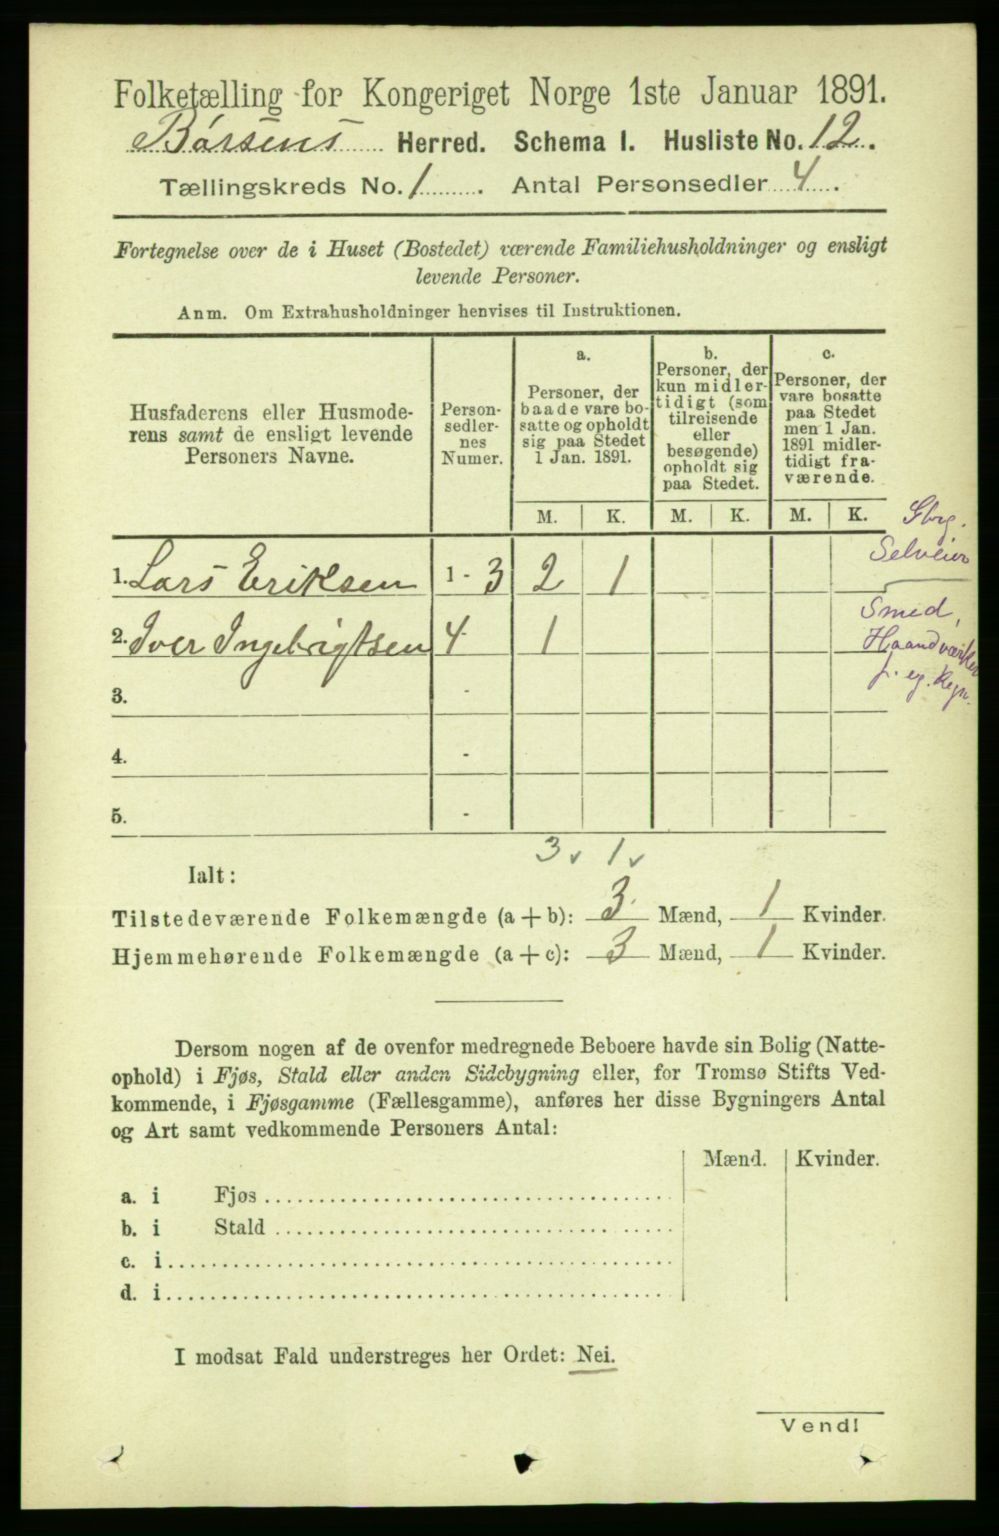 Folketælling for Kongeriget Norge 1ste Januar 1891.
Børsens Herred. Schema I. Husliste No. 12.
Tællingskreds No. 1. Antal Personsedler 4.
Fortegnelse over de i Huset (Bostedet) værende Familiehusholdninger og ensligt
levende Personer.
Anm. Om Extrahusholdninger henvises til Instruktionen.
Husfaderens eller Husmode-
rens samt de ensligt levende
Personers Navne.
Person-
sedler-
nes
Numer.
a.
Personer, der
baade vare bo-
satte og opholdt
sig paa Stedet
1 Jan. 1891.
b.
Personer, der
kun midler-
tidigt (som
tilreisende
eller
besøgende)
opholdt sig
paa Stedet.
c.
Personer, der
vare bosatte
paa Stedet
men 1 Jan.
1891 midler-
tidigt fra-
værende.
M. K. M. K. M. K.
Gbrg.
Selveier
1. Lars Eriksen 1 - 3 2 1
Smed,
2. Iver Ingebrigtsen 4 1
Haandværker
f. eg. Regn.
3. -
4. -
5. -
3 v 1 v
Ialt:
Tilstedeværende Folkemængde (a + b): 3 Mænd, 1 Kvinder.
Hjemmehørende Folkemængde (a + c): 3 Mænd, 1 Kvinder.
Dersom nogen af de ovenfor medregnede Beboere havde sin Bolig (Natte-
ophold) i Fjøs, Stald eller anden Sidebygning eller, for Tromsø Stifts Ved-
kommende, i Fjøsgamme (Fællesgamme), anføres her disse Bygningers Antal
og Art samt vedkommende Personers Antal:
Mænd. Kvinder.
a. i Fjøs
b. i Stald
c. i
d. i
I modsat Fald understreges her Ordet: Nei.
Vend!